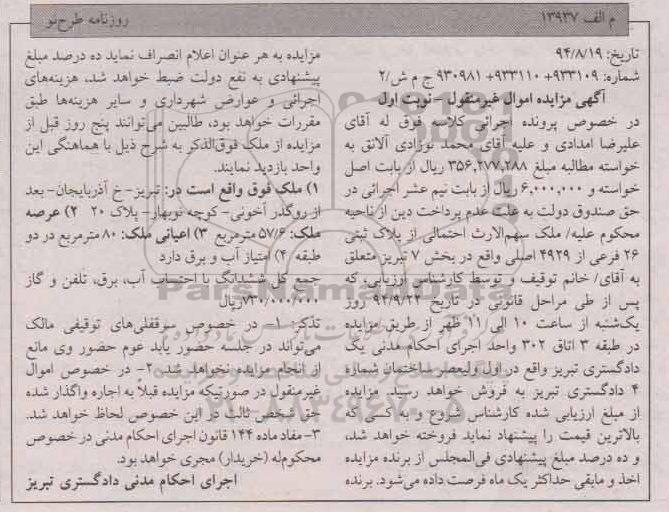 م الف ۱۳۹۳۷
روزنامه طرح‌نو
تاریخ: ۹۴/۸/۱۹
شماره: ۹۳۳۱۰۹+ ۹۳۳۱۱۰+ ۹۳۰۹۸۱ ج م ش/۲
آگهی مزایده اموال غیرمنقول - نوبت اول
در خصوص پرونده اجرائی کلاسه فوق له آقای
علیرضا امدادی و علیه آقای محمد نوزادی آلانق به
خواسته مطالبه مبلغ ۳۵۶,۲۷۷,۲۸۸ ریال از بابت اصل
خواسته و ۶,۰۰۰,۰۰۰ ریال از بابت نیم عشر اجرائی در
حق صندوق دولت به علت عدم پرداخت دین از ناحیه
محکوم علیه/ ملک سهم‌الارث احتمالی از پلاک ثبتی
۲۶ فرعی از ۴۹۲۹ اصلی واقع در بخش ۷ تبریز متعلق
به آقای/ خانم توقیف و توسط کارشناس ارزیابی، که
پس از طی مراحل قانونی در تاریخ ۹۴/۹/۲۲ روز
یکشنبه از ساعت ۱۰ الی ۱۱ ظهر از طریق مزایده
در طبقه ۳ اتاق ۳۰۲ واحد اجرای احکام مدنی یک
دادگستری تبریز واقع در اول ولیعصر ساختمان شماره
۴ دادگستری تبریز به فروش خواهد رسید. مزایده
از مبلغ ارزیابی شده کارشناس شروع و به کسی که
بالاترین قیمت را پیشنهاد نماید فروخته خواهد شد،
و ده درصد مبلغ پیشنهادی فی‌المجلس از برنده مزایده
اخذ و مابقی حداکثر یک ماه فرصت داده می‌شود. برنده
مزایده به هر عنوان اعلام انصراف نماید ده درصد مبلغ
پیشنهادی به نفع دولت ضبط خواهد شد، هزینه‌های
اجرائی و عوارض شهرداری و سایر هزینه‌ها طبق
مقررات خواهد بود، طالبین می‌توانند پنج روز قبل از
مزایده از ملک فوق‌الذکر به شرح ذیل با هماهنگی این
واحد بازدید نمایند.
۱) ملک فوق واقع است در: تبریز- خ آذربایجان- بعد
از روگذر آخونی- کوچه نوبهار- پلاک ۲۰ ۲) عرصه
ملک: ۵۷/۶ مترمربع ۳) اعیانی ملک: ۸۰ مترمربع در دو
طبقه ۴) امتیاز آب و برق دارد
جمع کل ششدانگ با احتساب آب، برق، تلفن و گاز
۷۳۰/۰۰۰/۰۰۰ریال
تذکر: ۱- در خصوص سرقفلی‌های توقیفی مالک
می‌تواند در جلسه حضور یابد عوم حضور وی مانع
از انجام مزایده نخواهد شد. ۲- در خصوص اموال
غیرمنقول در صورتیکه مزایده قبلاً به اجاره واگذار شده
حق شخص ثالث در این خصوص لحاظ خواهد شد.
۳- مفاد ماده ۱۴۴ قانون اجرای احکام مدنی در خصوص
محکوم‌له (خریدار) مجری خواهد بود.
اجرای احکام مدنی دادگستری تبریز
ParsNamadData